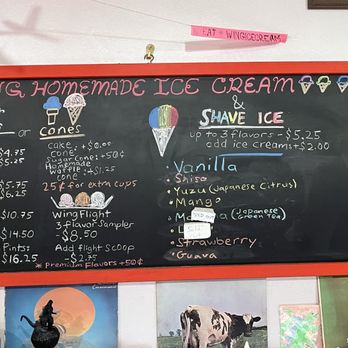 EAT @ WINGICECREAM
G HOMEMADE ICE CREAM
&
SHAVE ICE
or cones
up to 3 flavors - $5.25
add ice creams +$2.00
$4.75
$5.25
cake cone: +$0.05
Sugar cone: +50¢
Homemade
Waffle: +$1.25
cone
25¢ for extra cups
$5.75
$6.25
$10.75
$14.50
Pints:
$16.25
Wing Flight
3 flavor Sampler
$8.50
Add flight scoop
- $2.75
* Premium Flavors +50¢
• Vanilla
• Shiso
• Yuzu (Japanese Citrus)
• Mango
(Japanese
Green Tea)
• Strawberry
• Guava